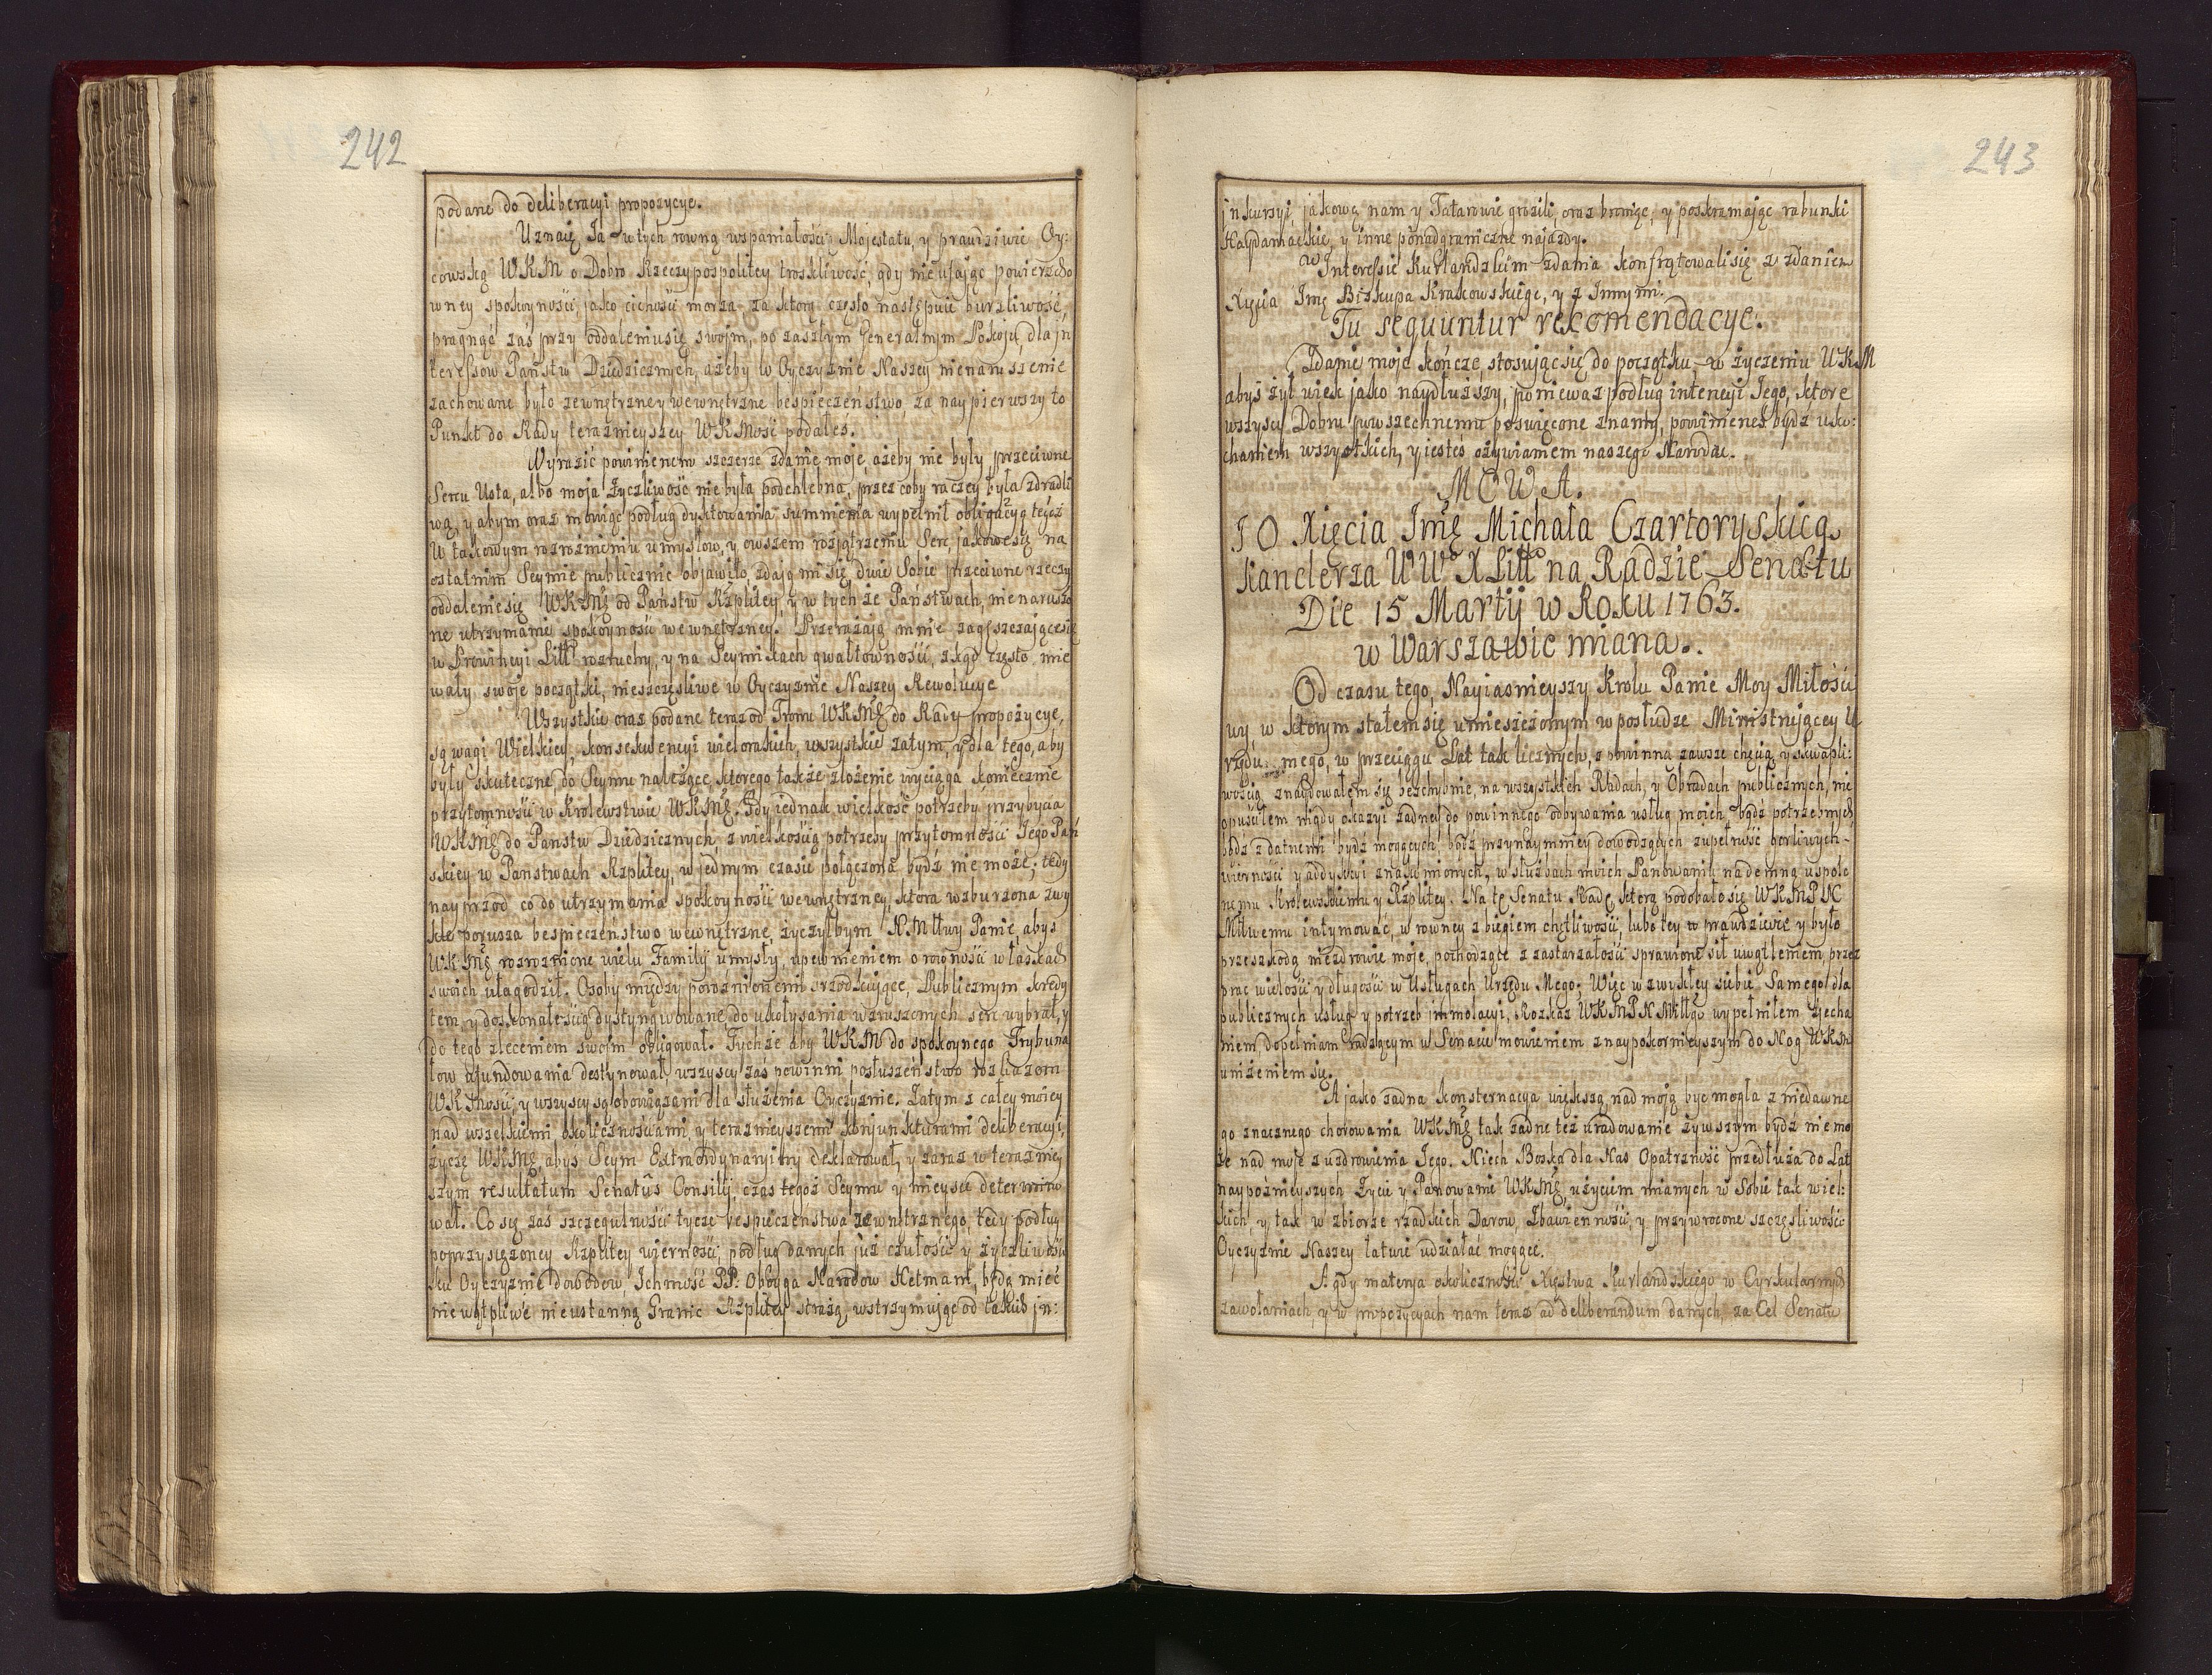 242
podane do deliberacyi propozycye.
Uznaię Ja w tych rowną wspaniałości Majestatu, y prawdziwie Oy:
cowską WKM o Dobro Rzeczypospolitey troskliwość, gdy nie ufając powierzcho
wney spokoyności, jako cichości morza, za ktorą często następuie burzliwość,
pragnąć zaś przy oddaleniu się swoim, po zaszłym Generalnym Pokoju, dla jn
teressow Państw Dziedzicznych, ażeby w Oyczyznie Naszey nienaruszenie
zachowane było zewnętrzne y wewnętrzne bespieczeństwo, za naypierwszy to
Punkt do Rady teraznieyszey WKMosc podałes.
Wyrazić powinienem szczerze zdanie moje, ażeby nie były przeciwne
Sercu Usta, albo moja Życzliwość nie była podchlebna, przez coby raczey była zdradli
wą, y abym oraz mowiąc podług dyktowania sumnienia wypełnił obligacyą teyże
W takowym rozroznieniu umysłow, y owszem rozjątrzeniu Serc, jakowe się na
ostatnim Seymie publicznie objawiło, zdają mi się dwie Sobie przeciwne rzeczy
oddalenie się WKMę od Państw Rzpltey, y w tych że Państwach, nienaruszo
ne utrzymanie spokoyności wewnętrzney. Przerażają mnie zagęszczające się
w Prowincyi Litt. rozruchy, y na Seymikach gwałtowności, zkąd często mie
wały swoje początki, nieszczęsliwe w Oyczyznie Naszey Rewolucye
Wszystkie oraz podane teraz od Tronu WKMę do Rady propozycye,
są wagi Wielkiey, konsekwencyi wielorakich, wszystkie zatym, y dla tego, aby
były skuteczne, do Seymu należące, ktorego także złożenie wyciąga koniecznie
przytomności w Krolewstwie WKMę. Gdy jednak wielkość potrzeby przybycia
WKMę do Państw Dziedzicznych, z wielkością potrzeby przytomności Jego Pań
skiey w Państwach Rzpltey, w jednym czasie połączona bydź nie może, tedy
nayprzod co do utrzymania spokoyności wewnętrzney, ktora wzburzona zwy
kle porusza bespieczeństwo wewnętrzne, życzyłbym N. Mttwy Panie, abys
WKMę rozroznione wielu Familij umysły, upewnieniem o rowności w łaskach
swoich ułagodził. Osoby między poroznionemi srzodkujące, Publicznym kredy
tem, y doskonałością dystyngwowane, do ukołysania wzruszonych serc wybrał, y
do tego zleceniem swoim obligował. Tychże aby WKM do spokoynego Trybuna
łow ufundowania destynował, wszyscy zaś powinni posłuszeństwo rozkazom
WKMości, y wszyscy są obowiązani dla służenia Oyczyznie. Zatym z całey moiey
nad wszelkiemi okolicznościami, y teraznieyszemi konjunkturami deliberacyi,
życzę WKMę, abys Seym Extraordynaryiny deklarował, y zaraz w teraźniey
szym resultatum Senatûs Consilij, czas tegoż Seymu y mieysce determino
wał. Co się zaś szczegulności tycze bespieczeństwa zewnętrznego, tedy podług
poprzysiężoney Rzpltey wierności, podług danych już czułości y życzliwości
ku Oyczyznie dowodow, Ichmość PP. Oboyga Narodow Hetmani, będą mieć
niewątpliwe nieustanną Granic Rzpltey strażą, wstrzymując od takich jn:
243
jnkursyi, jakową nam y Tatarowie grozili, oraz broniąc, y poskramając rabunki
Haydamackie, y inne ponadgraniczne najazdy.
w Interessie Kurlandzkim zdania konfrontowali się z zdaniem
Xięcia Jmę Biskupa Krakowskiego, y z Innymi.
Tu sequuntur rekomendacye.
Zdanie moje kończę, stosując się do początku, w życzeniu WKM
abyś żył wiek jako naydłuższy, poniewaz podług intencyi Jego, ktore
wszyscy Dobru powszechnemu poswięcone znamy, powinieneś bydź uko:
chaniem wszystkich, y jesteś ożywianiem naszego Narodu.
MOWA.
JO Xięcia Jmę Michała Czartoryskiego
Kanclerza WWXLitt na Radzie Senatu
Die 15 Martij w Roku 1763.
w Warszawie miana.
Od czasu tego, Nayiasnieyszy Krolu Panie Moy Miłości
wy, w ktorym stałem się umieszczonym w posłudze Ministrującey U
rzędu mego, w przeciągu Lat tak licznych, z powinną zawsze chęcią, y skwapli:
wością znaydowałem się bezchybnie, na wszystkich Radach, y Obradach publicznych, nie
opuściłem nigdy okazyi żadney do powinnego odbywania usług moich bądź potrzebnych,
bądź zdatnemi bydź mogących, bądź przynaymniey dowodzących zupełność gorliwych
wierności y addykcyi znakomionych, w służbach moich Panowaniu nademną wspole
nemu Krolewskiemu y Rzpltey. Na tę Senatu Radę, ktorą podobało się WKMPN
Mttwemu intymować, w rowney z biegiem chętliwości, lubo tey w prawdziwie y było
przeszkodą niezdrowie moje, pochodzące z zastarzałości sprawione sił uwątleniem, przez
prac wielości y długości w Usługach Urzędu Mego; Więc w zwykłey siebie Samego dla
publicznych usług y potrzeb immolacyi, Rozkaz WKMPN Mttgo wypełniłem zjecha
niem, dopełniam radzącym w Senacie mowieniem z naypokornieyszym do Nog WKM
uniżeniem się.
A jako żadna konsternacya większą nad moją byc mogła z niedawne
go znacznego chorowania WKMę tak żadne też uradowanie żywszym bydź nie mo
że nad moje z uzdrowienia Jego. Niech Boska dla Nas Opatrzność przedłuża do Lat
naypoźnieyszych Życie y Panowanie WKMę, użyciem mianych w Sobie tak wiel:
kich, y tak w zbiorze rzadkich Darow, Zbawienność, y przywrocone szczęsliwości
Oyczyznie Naszey łatwie udziałać mogące.
A gdy materya okoliczności Xięstwa Kurlandskiego w Cyrkularnych
zawołaniach, y w propozycyach nam teraz ad deliberandum danych, za Cel Senatu